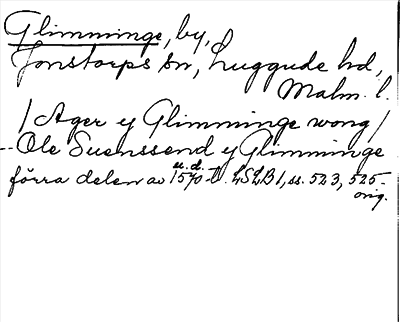 Glimminge, by,
Jonstorps sn, Luggude hd,
Malm. l.
/ Ager ej Glimminge wong /
-- Ole Suenssend y Glimminge
u. d.
förra delen av 1570-t. LSLB 1, ss. 523, 525-
orig.